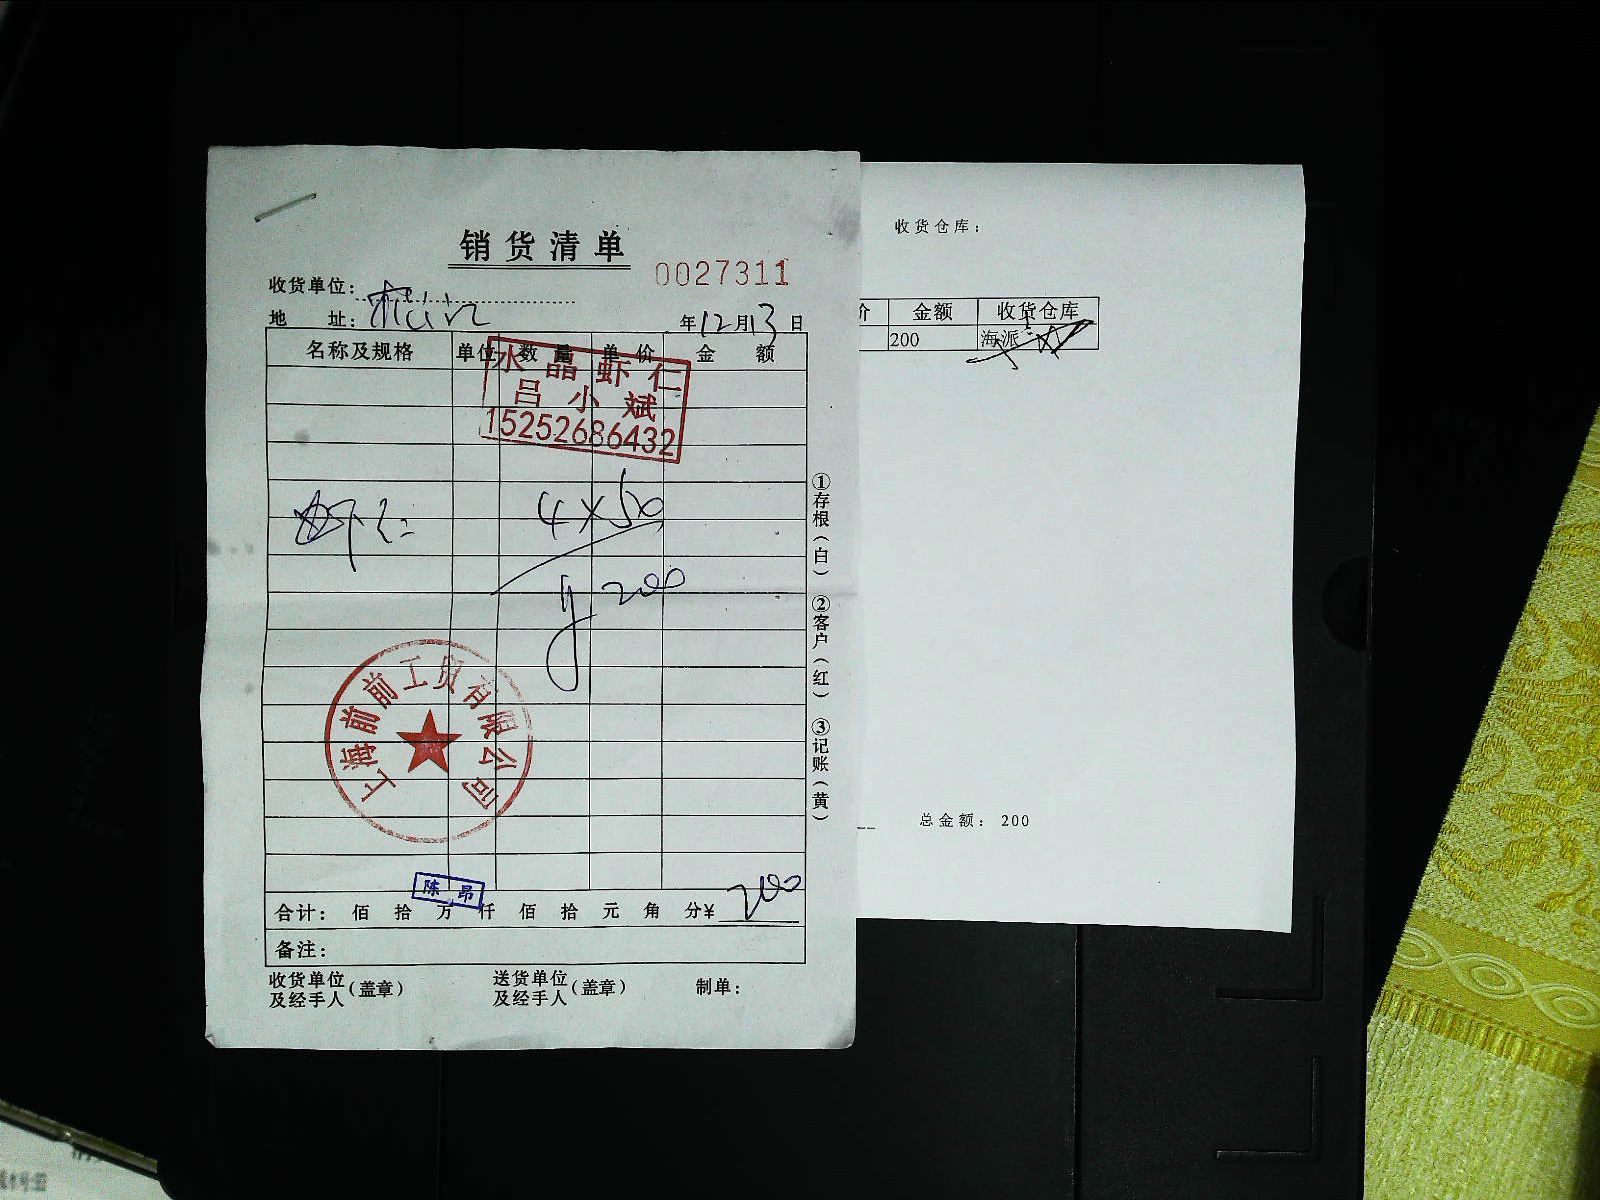 销货清单
0027311
收货单位：
地 址：
年12月13日
名称及规格 单位 数量 单价 金额
水晶虾仁
吕小斌
15252686432
虾仁 4×50
200
上海前前工贸有限公司
陈昂
合计： 佰 拾 万 仟 佰 拾 元 角 分¥ 200
备注：
收货单位
及经手人（盖章）
送货单位
及经手人（盖章）
制单：
①存根（白） ②客户（红） ③记账（黄）
收货仓库：
价 金额 收货仓库
200 海派
总金额： 200